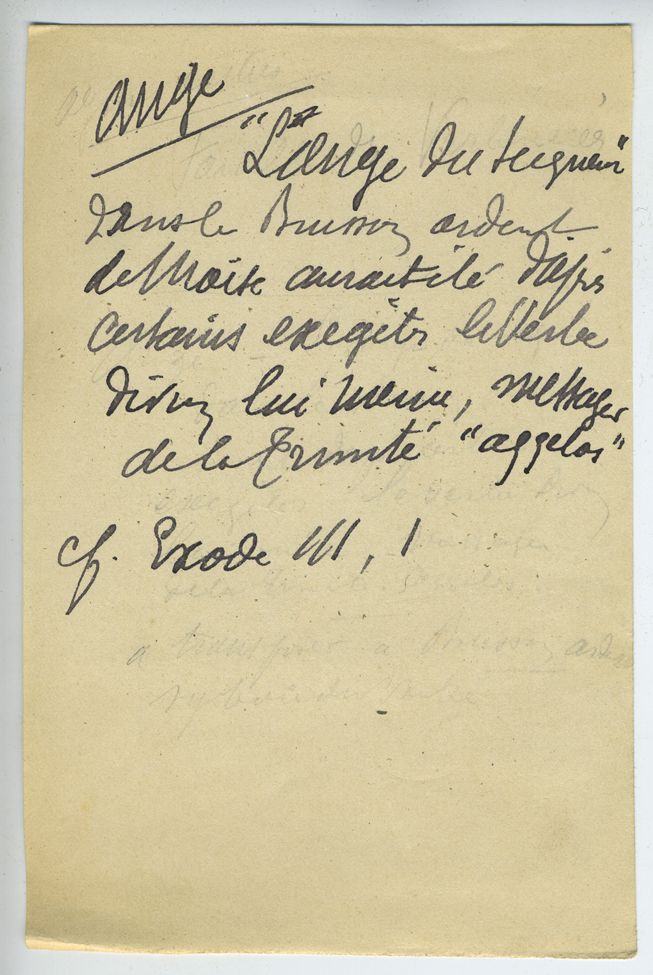 ange
"L'ange du Seigneur"
dans le Buisson ardent
de Moïse aurait été d'après
certains exégètes le Verbe
divin lui même, messager
de la Trinité "aggelos"
cf. Exode III, 1
a transposer a Buisson